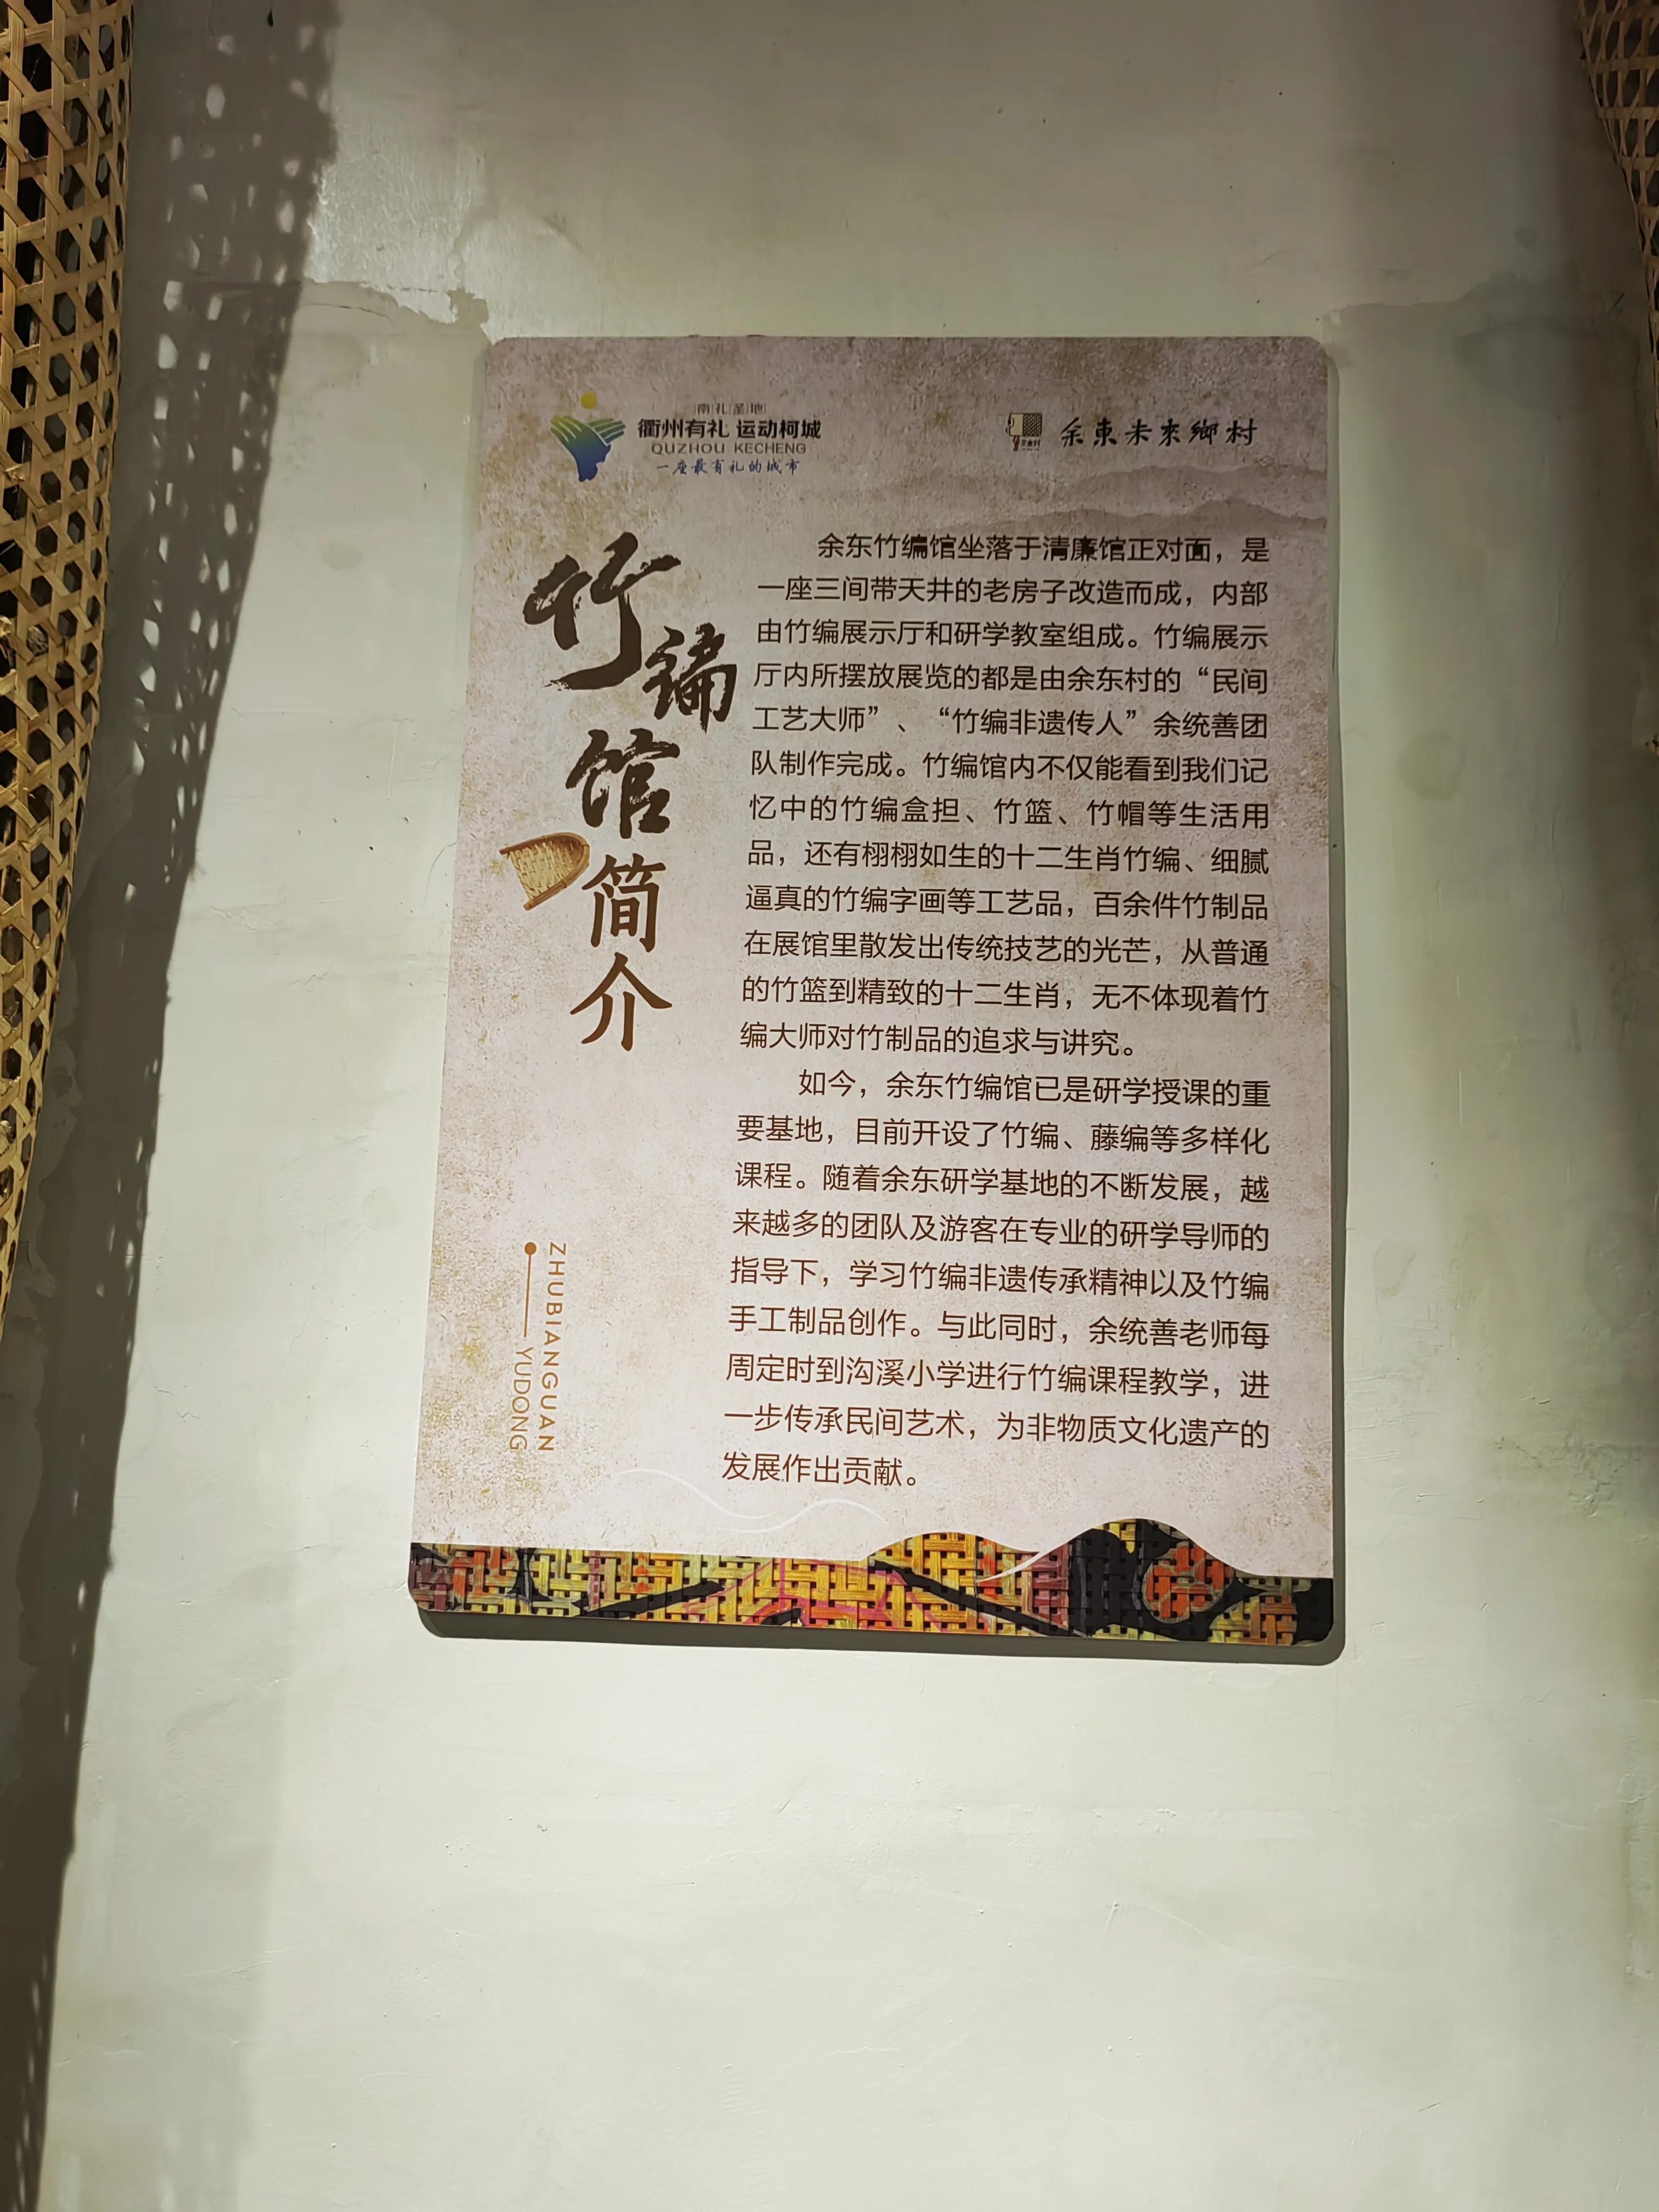 南孔圣地
衢州有礼 运动柯城
QUZHOU KECHENG
一座最有礼的城市
余东未来乡村
竹编馆简介
余东竹编馆坐落于清廉馆正对面，是
一座三间带天井的老房子改造而成，内部
由竹编展示厅和研学教室组成。竹编展示
厅内所摆放展览的都是由余东村的“民间
工艺大师”、“竹编非遗传人”余统善团
队制作完成。竹编馆内不仅能看到我们记
忆中的竹编盒担、竹篮、竹帽等生活用
品，还有栩栩如生的十二生肖竹编、细腻
逼真的竹编字画等工艺品，百余件竹制品
在展馆里散发出传统技艺的光芒，从普通
的竹篮到精致的十二生肖，无不体现着竹
编大师对竹制品的追求与讲究。
如今，余东竹编馆已是研学授课的重
要基地，目前开设了竹编、藤编等多样化
课程。随着余东研学基地的不断发展，越
来越多的团队及游客在专业的研学导师的
指导下，学习竹编非遗传承精神以及竹编
手工制品创作。与此同时，余统善老师每
周定时到沟溪小学进行竹编课程教学，进
一步传承民间艺术，为非物质文化遗产的
发展作出贡献。
ZHUBIANGUAN
YUDONG